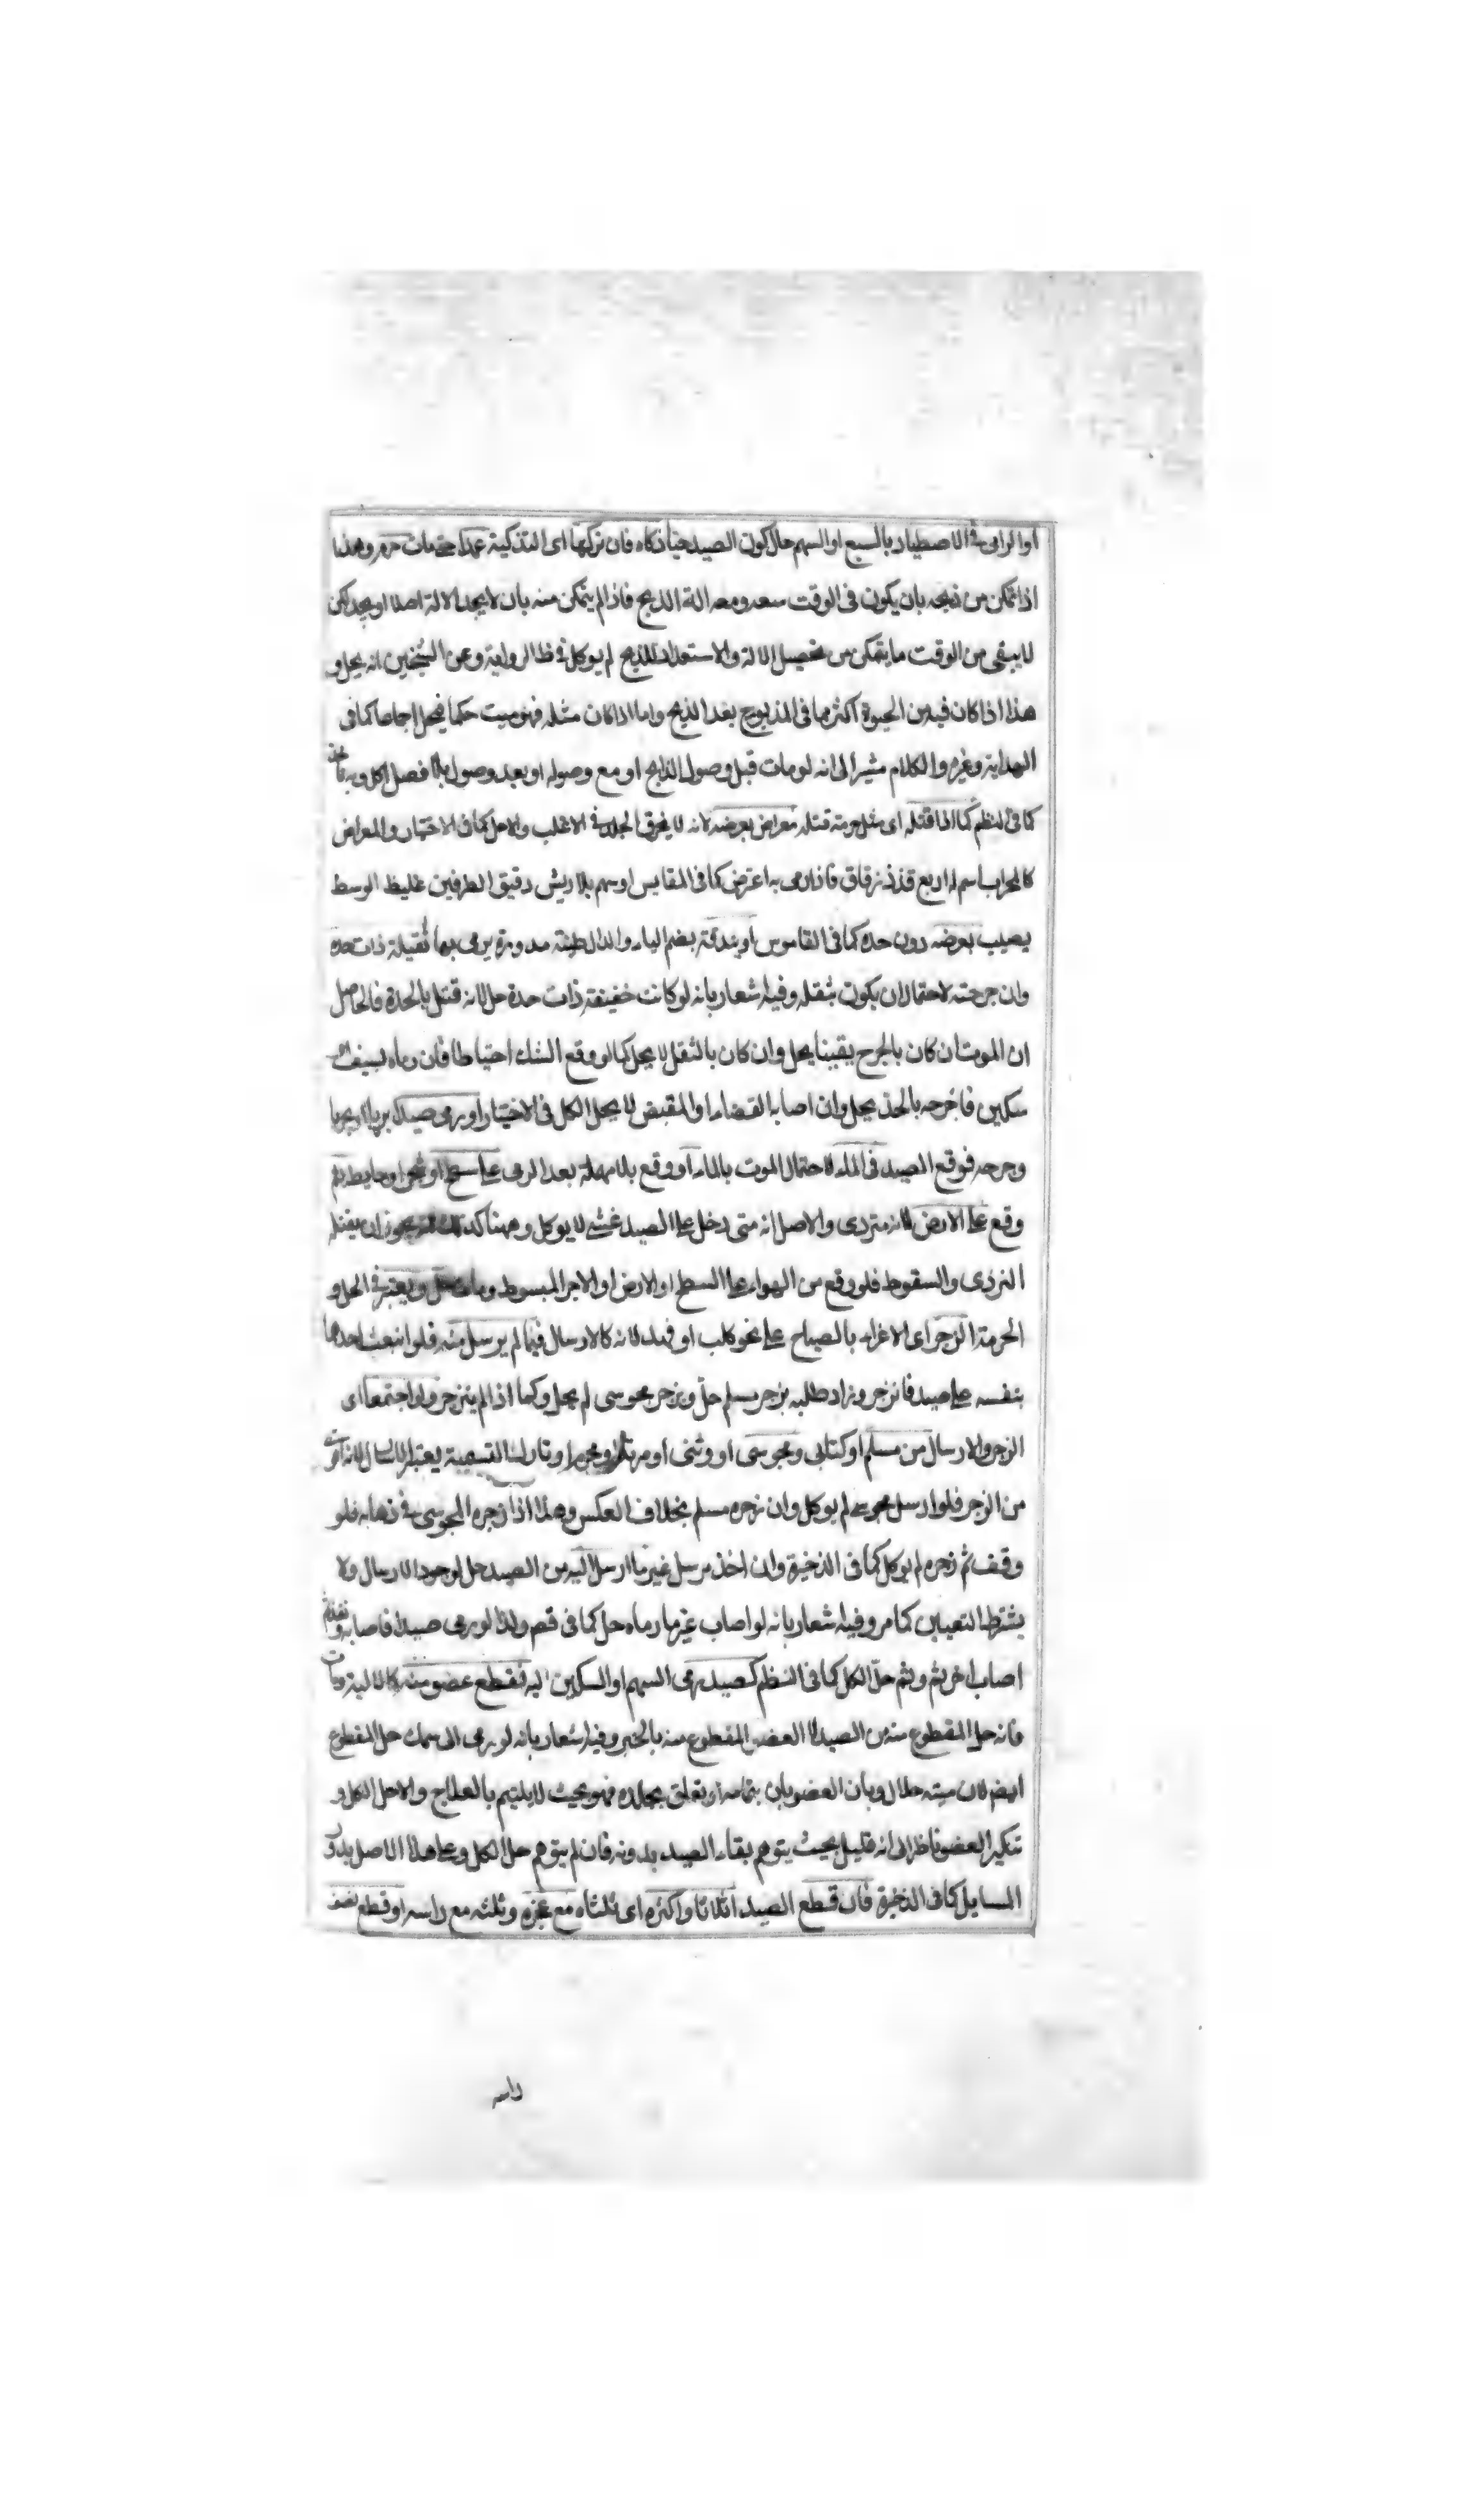 او الرامى فى الاصطياد بالسبع او السهم حال كون الصيد حيا ذكاه فان تركها اى التذكية عمدا حتى مات حرم وهذا
اذا تمكن من ذبحه بان يكون فى الوقت سعة ومعه الة الذبح فاذا لم يتمكن منه بان لا يجد الالة اصلا او يجد لكن
لا يبقى من الوقت ما يتمكن من تحصيل الالة والاستعداد للذبح لم يوكل فى ظا الرواية وعن الشيخين انه يحل و
هذا اذا كان فيه من الحيوة اكثر مما فى المذبوح بعد الذبح واما اذا كان مثله فهو ميت حكما فيحل اجماعا كما فى
الهداية وغيره والكلام مشير الى انه لو مات قبل وصول الذابح او مع وصوله او بعد وصوله بلا فصل اكل وبه ناخذ
كما فى النظم كما اذا قتله اى مثل حرمة قتله معراض بعرضه لانه لا يخرق الجلد فى الاغلب والا حل كما فى الاختيار والمعراض
كالمحراب سهم له اربع قذذ رقاق فاذا رمى به اعترض كما فى المقايس او سهم بلا ريش دقيق الطرفين غليظ الوسط
يصيب بعرضه دون حده كما فى القاموس او بندقة بضم الباء والدال طينة مدورة يرمى بها ثقيلة ذات حدة
وان جرحته لاحتمال ان يكون بثقله وفيه اشعار بانه لو كانت خفيفة ذات حدة حل لانه قتل بالحدة فالحاصل
ان الموت ان كان بالجرح يقينا يحل وان كان بالثقل لا يحل كما لو وقع الشك احتياطا فان رماه بسيف او
سكين فاخرجه بالحد يحل وان اصابه القضاء او المقبض لا يحل الكل فى الاختيار او رمى صيدا بريا او بحريا
وجرحه فوقع الصيد فى الماء لاحتمال الموت بالماء او وقع بلا مهلة بعد الرمى على سطح او شجر او حايط ثم
وقع على الارض لانه متردى والاصل انه متى دخل على الصيد غشى لا يوكل وههنا كذلك يجوز ان يقتله
التردى والسقوط فلو وقع من الهواء على السطح او الارض او الاجر المبسوط ومات حل ويعتبر فى الحل و
الحرمة الزجر اى الاغراء بالصياح على نحو كلب او فهد لانه كالارسال فيما لم يرسل منه فلو انبعث احدهما
بنفسه على صيد فانزجر وزاد طلبه بزجر مسلم حل وبزجر مجوسى لم يحل وكما اذا لم ينزجر ولو اجتمعا اى
الزجر والارسال من مسلم او كتابى ومجوسى او وثنى او مرتد او محرم او تارك التسمية يعتبر الارسال لانه اقوى
من الزجر فلو ارسل مجوسى لم يوكل وان زجره مسلم بخلاف العكس وهذا اذا زجره المجوسى فى ذهابه فلو
وقف ثم زجره لم يوكل كما فى الذخيرة وان اخذ مرسل غير ما ارسل اليه من الصيد حل لوجود الارسال ولا
يشترط التعيين كما مر وفيه اشعار بانه لو اصاب غير ما رماه حل كما فى قصم ولذا لو رمى صيدا فاصابه ونفذ ثم
اصاب اخر ثم وثم حل الكل كما فى النظم كصيد رمى السهم او السكين اليه فقطع عضو منه كالالية ومات
فانه حل المقطوع منه من الصيد لا العضو المقطوع منه بالخبر وفيه اشعار بانه لو رمى الى سمك حل المقطوع
ايضم لان ميتته حلال وبان العضو بان بتمامه او تعلق بجلده فهو بحيث لا يلتيم بالعلاج والا حل الكل و
تنكير العضو ناظر الى انه قليل بحيث يتوهم بقاء الصيد بدونه فان لم يتوهم حل الكل وعلى هذا الاصل يدور
المسايل كما فى الذخيرة فان قطع الصيد اثلاثا واكثره اى ثلثاه مع عجزه وثلثه مع راسه او قطع نصف
راسه